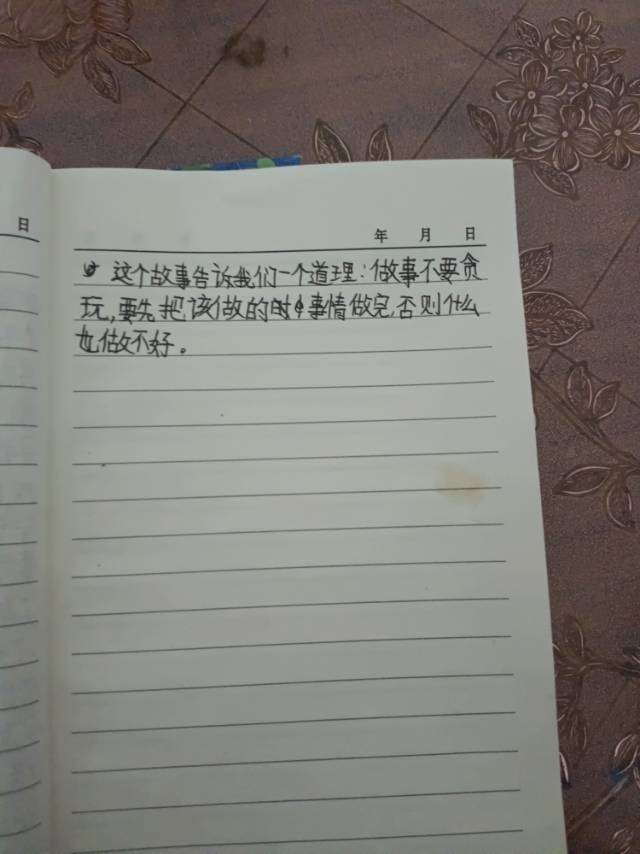 日
年 月 日
这个故事告诉我们一个道理:做事不要贪
玩,要先把该做的时事情做完,否则什么
也做不好。